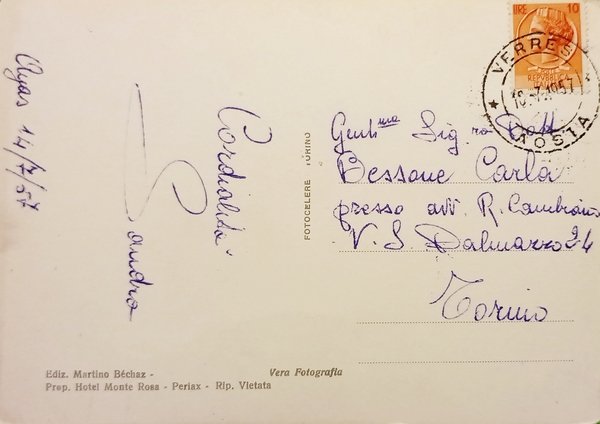 Ayas 14/7/57
Cordialità
Sandro
FOTOCELERE TORINO
Ediz. Martino Béchaz -
Prop. Hotel Monte Rosa - Periax - Rip. Vietata
Vera Fotografia
LIRE 10
VERRES
AOSTA
Gent.ma Sig.ra Dott
Bessone Carla
presso avv. R.
V. S. Dalmazzo 24
Torino